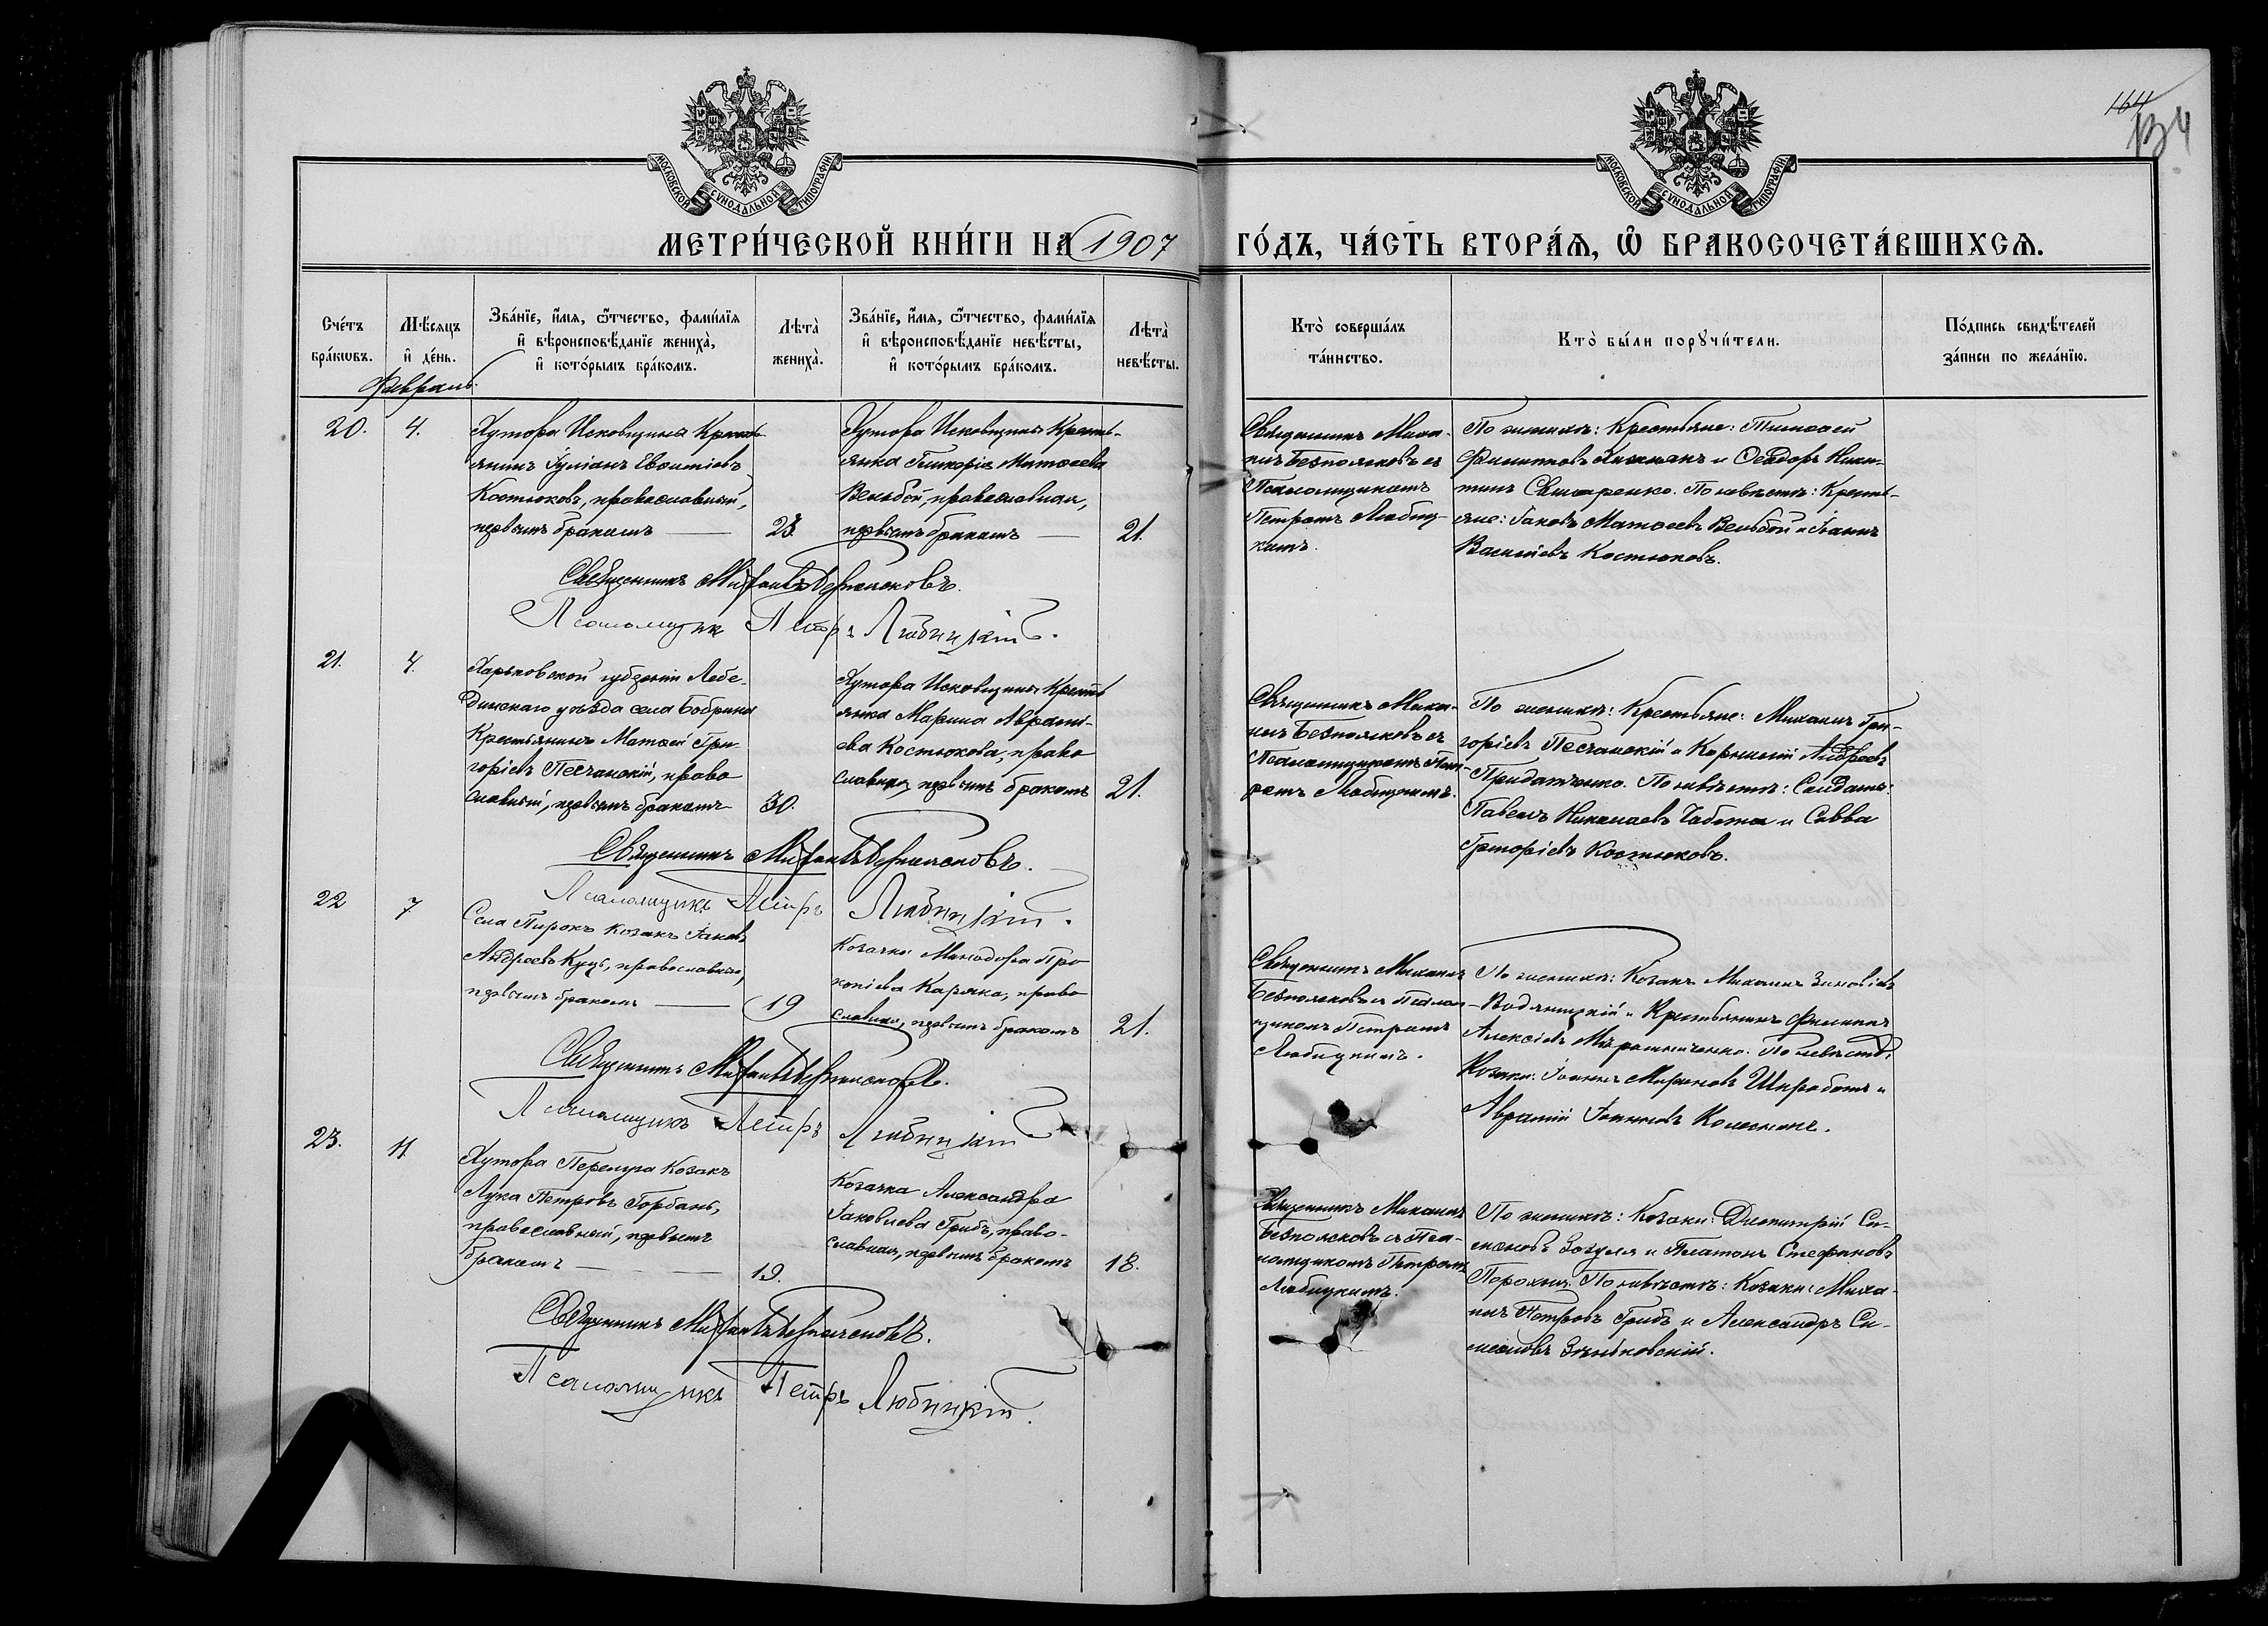 164
134
МОСКОВСКОЙ СѴНОДАЛЬНОЙ ТИПОГРАФІИ
МОСКОВСКОЙ СѴНОДАЛЬНОЙ ТИПОГРАФІИ
МЕТРИ́ЧЕСКОЙ КНИ́ГИ НА 1907 ГО́ДЪ, ЧА́СТЬ ВТОРА́Ѧ, Ѡ҆ БРАКОСОЧЕТА́ВШИХСѦ.
Сче́тъ
бра́кѡвъ.
Мѣ́сяцъ
и҆ де́нь.
Зва́нїе, и҆́мя, ѻ҆́тчество, фами́лїя
и҆ вѣроисповѣ́данїе жениха̀,
и҆ кото́рымъ бра́комъ.
Лѣта̀
жениха̀.
Зва́нїе, и҆́мя, ѻ҆́тчество, фами́лїя
и҆ вѣроисповѣ́данїе невѣ́сты,
и҆ кото́рымъ бра́комъ.
Лѣта̀
невѣ́сты.
Кто̀ соверша́лъ
та́инство.
Кто̀ бы́ли порꙋчи́тели.
По́дпись свидѣ́телей
за́писи по жела́нїю.
Февраль.
20.
4.
Хутора Исковщина Кресть-
янинъ Іуліанъ Евѳиміевъ
Костюковъ, православный,
первымъ бракомъ
23.
Хутора Исковщина Кресть-
янка Гликерія Матѳеева
Вельбой, православная,
первымъ бракомъ
21.
Священникъ Миха-
илъ Безпоясковъ съ
Псаломщикомъ
Петромъ Любиц-
кимъ.
По женихѣ: Крестьяне: Тимоѳей
Филипповъ и Ѳеодоръ Ники-
тинъ Свинаренко. По невѣстѣ: Кресть-
яне: Іаковъ Матѳеевъ Вельбой и Іоаннъ
Васильевъ Костюковъ.
Священникъ Михаилъ Безпоясковъ.
Псаломщик Петръ Любицкій.
21.
4.
Харьковской губерніи Лебе-
динскаго уѣзда села Бобрика
Крестьянинъ Матѳей Гри-
горіевъ Песчанскій, право
славный, первымъ бракомъ
30.
Хутора Исковщина Кресть
янка Марина Аврамі-
ева Костюкова, право
славная, первымъ бракомъ
21.
Священникъ Миха-
илъ Безпоясковъ съ
Псаломщикомъ Пет-
ромъ Любицкимъ.
По женихѣ: Крестьяне: Михаилъ Гри-
горіевъ Песчанскій и Корнилій Андреевъ
Придатченко. По невѣстѣ: Солдаты:
Павелъ Николаевъ Чабота и Савва
Григоріевъ Костюковъ.
Священникъ Михаилъ Безпоясковъ.
Псаломщикъ Петръ Любицкій.
22
7
Села Пирокъ козакъ Іаковъ
Андреевъ Куць, православный,
первымъ бракомъ
19
Козачка Минодора Про
копіева Каряка, право
славная, первымъ бракомъ
21.
Священникъ Михаилъ
Безпоясковъ съ Псалом
щикомъ Петромъ
Любицкимъ.
По женихѣ: Козакъ Михаилъ Зиновіевъ
Водяницкій и Крестьянинъ Филиппъ
Алексіевъ Мірошниченко. По невѣстѣ:
Козаки: Іоаннъ Мироновъ Широботъ и
Аврамій Іоанновъ Колесникъ.
Священникъ Михаилъ Безпоясковъ.
Псаломщикъ Петръ Любицкій
23.
11
Хутора Перелуга Козакъ
Лука Петровъ Горбань,
православный, первымъ
бракомъ
19.
Козачка Александра
Іаковлева Грибъ, право-
славная, первымъ бракомъ
18.
Священникъ Михаилъ
Безпоясковъ съ Пса-
ломщикомъ Петромъ
Любицкимъ.
По женихѣ: Козаки: Димитрій Си-
меоновъ Зозуля и Платонъ Стефановъ
Порохня. По невѣстѣ: Козаки: Миха-
илъ Петровъ Грибъ и Александръ Си-
меоновъ Зѣньковскій.
Священникъ Михаилъ Безпоясковъ.
Псаломщикъ Петръ Любицкій.